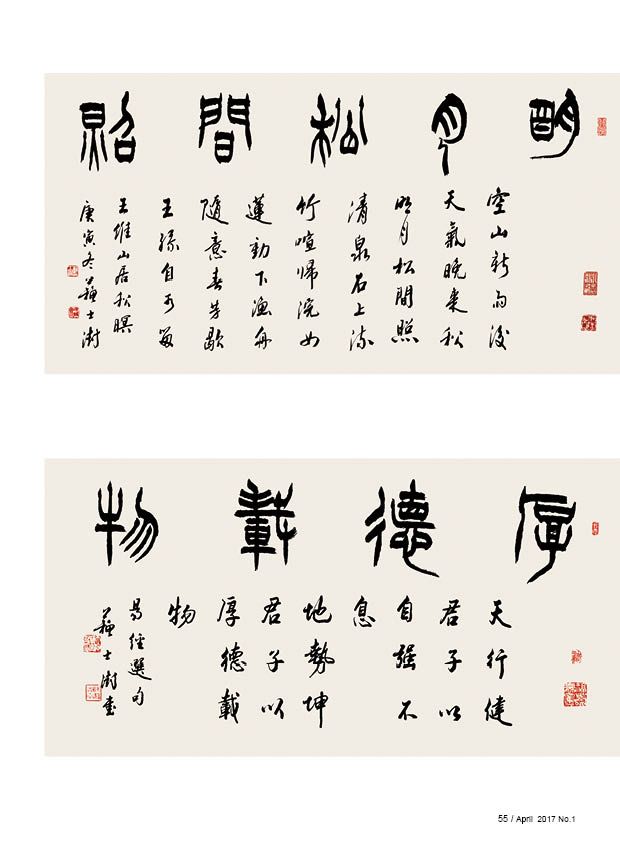 明月松間照
空山新雨後
天氣晚來秋
明月松間照
清泉石上流
竹喧歸浣女
蓮動下漁舟
隨意春芳歇
王孫自可留
王維山居秋暝
庚寅冬蘇士澍
厚德載物
天行健
君子以
自強不
息
地勢坤
君子以
厚德載
物
易經選句
蘇士澍書
55 / April 2017 No.1